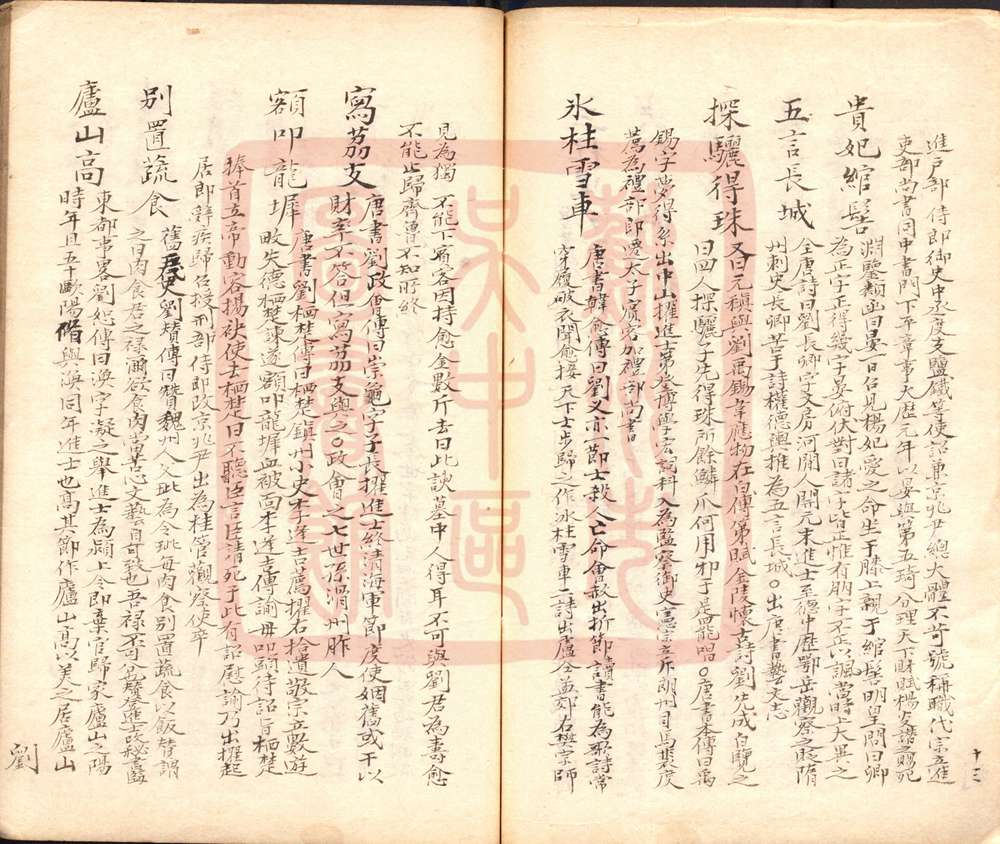 進户部侍郎御史中丞度支鹽鐵等使詔兼京兆尹總大體不苛號稱職代宗立進
吏部尚書同中書門下平章事大歷元年以晏與第五琦分理天下財賦楊炎譖之賜死
貴妃綰髻 淵鑒類函曰晏一日召見楊妃愛之命坐于膝上親于綰髻明皇問曰卿
為正字正得幾字晏俯伏對曰諸字皆正惟有朋字不正以諷當時上大異之
五言長城 全唐詩曰劉長卿字文房河間人開元末進士至德中歷鄂岳觀察之貶隋
州刺史長卿苦于詩權德輿推為五言長城○出唐書藝文志
探驪得珠 又曰元稹與劉禹錫韋應物在白傅第賦金陵懷古詩劉先成白覽之
曰四人探驪子先得珠所餘鱗爪何用邪于是罷唱○唐書本傳曰禹
錫字夢得系出中山擢進士第登博學宏詞科入為監察御史憲宗立斥朗州司馬裴度
薦為禮部郎遷太子賓客加禮部尚書
氷柱雪車 唐書韓愈傳曰劉乂亦一節士救人亡命會赦出折節讀書能為歌詩常
穿履破衣聞愈接天下士步歸之作冰柱雪車二詩出盧仝孟郊右樊宗師
見為獨 不能下賓客因持愈金數斤去曰此諛墓中人得耳不可與劉君為壽愈
不能止歸齊魯不知所終
寫荔支 唐書劉政會傳曰崇龜字子長擢進士終清海軍節度使姻舊或干以
財率不答但寫荔支與之○政會之七世孫滑州胙人
額叩龍墀 唐書劉栖楚傳曰栖楚鎮州小史李逢吉薦擢右拾遺敬宗立數遊
畋失德栖楚諫遂額叩龍墀血被面李逢吉傳諭毋叩頭待詔旨栖楚
捧首立帝動容揚袂使去栖楚曰不聽臣言臣請死于此有詔慰諭乃出擢起
居郎辭疾歸召授刑部侍郎改京兆尹出為桂管觀察使卒
别置蔬食 舊五代史劉贊傳曰贊魏州人父玭為令玭每肉食别置蔬食以飯贊謂
之曰肉食君之禄爾欲食肉當苦心文藝自可致也吾禄不可分也登進士歷秘書
廬山高 東都事畧劉恕傳曰渙字凝之舉進士為潁上令即棄官歸家廬山之陽
時年且五十歐陽脩與渙同年進士也高其節作廬山高以美之居廬山
劉
十三